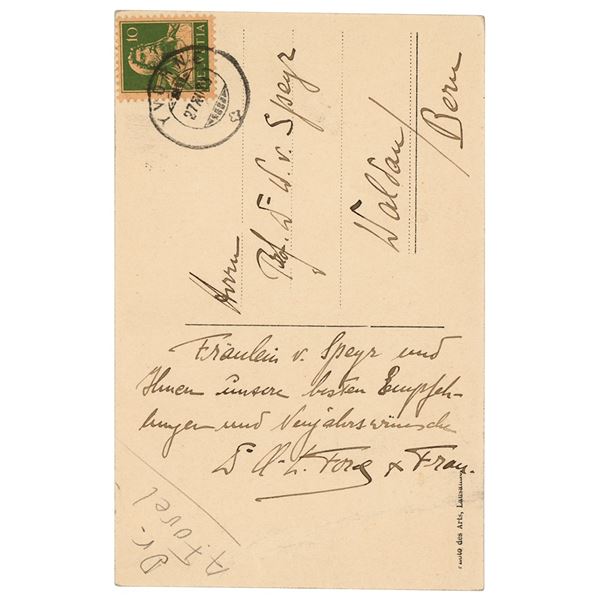 10
HELVETIA
YVE
27.XII
Herrn
Prof. Dr W. v. Speyr
Waldau/
Bern
Fräulein v. Speyr und
Ihnen unsere besten Empfeh-
lungen und Neujahrswünsche
Dr A. L. Forel & Frau.
Dr.
A. Forel
Photo des Arts, Lausanne